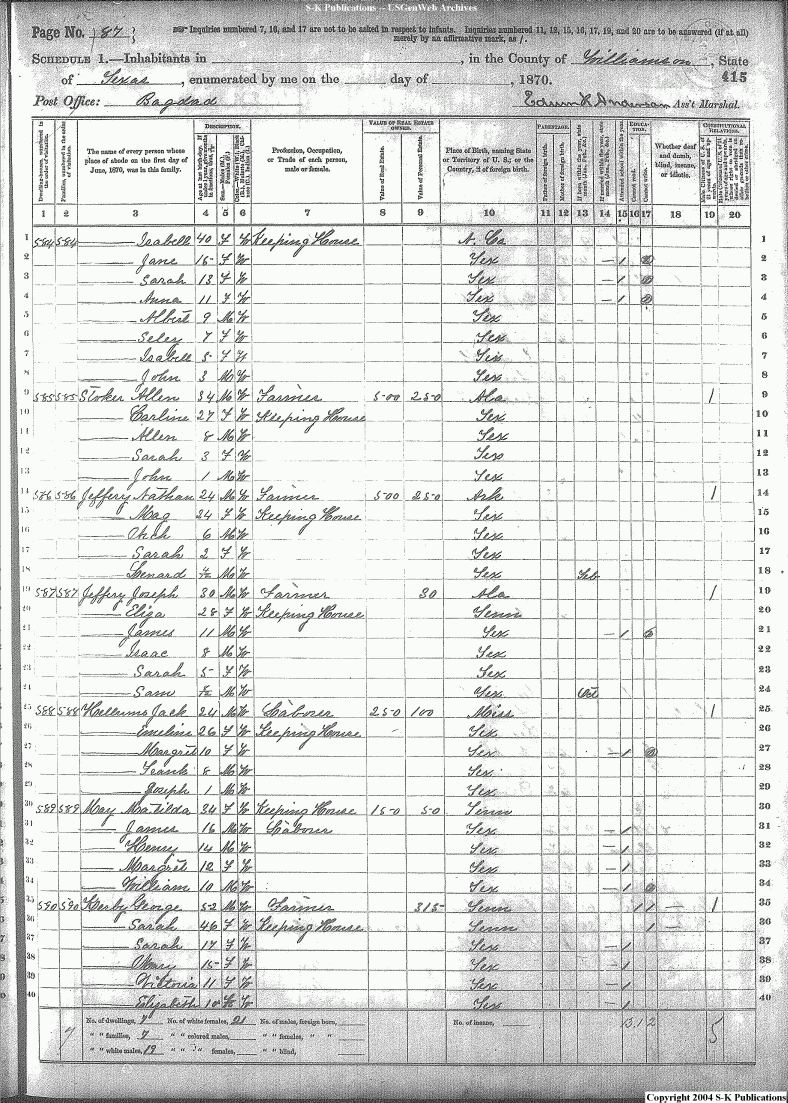 S-K Publications -- USGenWeb Archives
Page No. 187
Inquiries numbered 7, 16, and 17 are not to be asked in respect to infants. Inquiries numbered 11, 12, 15, 16, 17, 19, and 20 are to be answered (if at all)
merely by an affirmative mark, as /.
SCHEDULE 1.—Inhabitants in , in the County of Williamson, State
of Texas, enumerated by me on the day of , 1870. 415
Post Office: Bagdad Edwin R Anderson Ass't Marshal.
DESCRIPTION. VALUE OF REAL ESTATE OWNED. PARENTAGE. EDUCATION. CONSTITUTIONAL RELATIONS.
The name of every person whose place of abode on the first day of June, 1870, was in this family.
Profession, Occupation, or Trade of each person, male or female.
Value of Real Estate. Value of Personal Estate.
Place of Birth, naming State or Territory of U. S.; or the Country, if of foreign birth.
Father of foreign birth. Mother of foreign birth.
Attended school within the year. Cannot read. Cannot write.
Whether deaf and dumb, blind, insane, or idiotic.
1 2 3 4 5 6 7 8 9 10 11 12 13 14 15 16 17 18 19 20
1 584 584 —— Isabell 40 F W Keeping House N. Ca 1
2 —— Jane 15 F W Tex — / 2
3 —— Sarah 13 F W Tex — / 3
4 —— Anna 11 F W Tex — / 4
5 —— Albert 9 M W Tex 5
6 —— Seley 7 F W Tex 6
7 —— Isabell 5 F W Tex 7
8 —— John 3 M W Tex 8
9 585 585 Stoker Allen 34 M W Farmer 500 250 Ala / 9
10 —— Carline 27 F W Keeping House Tex 10
11 —— Allen 8 M W Tex 11
12 —— Sarah 3 F W Tex 12
13 —— John 1 M W Tex 13
14 586 586 Jeffery Nathan 24 M W Farmer 500 250 Ark / 14
15 —— Mag 24 F W Keeping House Tex 15
16 —— Arch 6 M W Tex 16
17 —— Sarah 2 F W Tex 17
18 —— Lenard M W Tex Feb 18
19 587 587 Jeffery Joseph 30 M W Farmer 30 Ala / 19
20 —— Eliza 28 F W Keeping House Tenn 20
21 —— James 11 M W Tex — / 21
22 —— Isaac 8 M W Tex 22
23 —— Sarah 5 F W Tex 23
24 —— Sam M W Tex Oct 24
25 588 588 Hellums Jack 24 M W Labourer 250 100 Miss / 25
26 —— Emeline 26 F W Keeping House Tex 26
27 —— Margret 10 F W Tex — / 27
28 —— Frank 8 M W Tex 28
29 —— Joseph 1 M W Tex 29
30 589 589 May Matilda 34 F W Keeping House 150 50 Tenn 30
31 —— James 16 M W Labour Tex — / 31
32 —— Henry 14 M W Tex — / 32
33 —— Margret 12 F W Tex — / 33
34 —— William 10 M W Tex — / 34
35 590 590 Kerby George 52 M W Farmer 315 Tenn / / — / 35
36 —— Sarah 46 F W Keeping House Tenn / — 36
37 —— Sarah 17 F W Tex — / 37
38 —— 15 F W Tex — / 38
39 —— Victoria 11 F W Tex — / 39
40 —— Elizabeth 10 F W Tex — / 40
No. of dwellings, 7 No. of white females, 21 No. of males, foreign born, No. of insane, 13 1 2 5
" " families, 7 " " colored males, " " females, " "
" " white males, 19 " " " females, " " blind,
Copyright 2004 S-K Publications